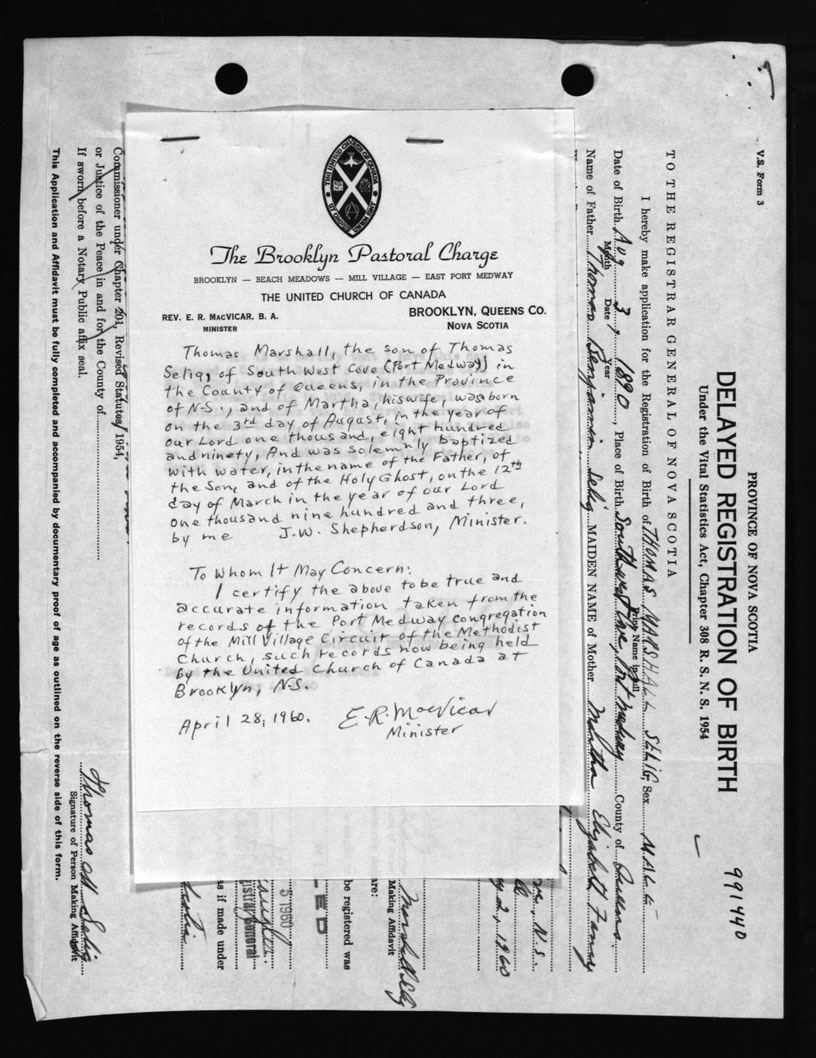 The Brooklyn Pastoral Charge
BROOKLYN — BEACH MEADOWS — MILL VILLAGE — EAST PORT MEDWAY
THE UNITED CHURCH OF CANADA
REV. E. R. MacVICAR, B. A.
MINISTER
BROOKLYN, QUEENS CO.
NOVA SCOTIA
Thomas Marshall, the son of Thomas
Selig, of South West Cove (Port Medway) in
the County of Queens, in the Province
of N.S., and of Martha, his wife, was born
on the 3rd day of August, in the year of
our Lord one thousand, eight hundred
and ninety, And was solemnly baptized
with water, in the name of the Father, of
the Son, and of the Holy Ghost, on the 12th
day of March in the year of our Lord
one thousand nine hundred and three,
by me J.W. Shepherdson, Minister.
To Whom It May Concern:
I certify the above to be true and
accurate information taken from the
records of the Port Medway congregation
of the Mill Village Circuit of the Methodist
Church, such records now being held
by the United Church of Canada at
Brooklyn, N.S.
April 28, 1960. E.R. MacVicar
Minister
V.S. Form 3
PROVINCE OF NOVA SCOTIA
DELAYED REGISTRATION OF BIRTH
Under the Vital Statistics Act, Chapter 308 R. S. N. S. 1954
991440
TO THE REGISTRAR GENERAL OF NOVA SCOTIA
I hereby make application for the Registration of Birth of THOMAS MARSHALL SELIG, Sex MALE
Print Name in full
Date of Birth Aug. 3, 1890, Place of Birth Southwest Cove, Port Medway County of Queens
Month Date Year
Name of Father Thomas Benjamin Selig MAIDEN NAME of Mother Martha Elizabeth
N.S.
2, 1960
Making Affidavit
are:
be registered was
LED
5 1960
istrar General
as if made under
Commissioner under Chapter 201, Revised Statutes, 1954,
or Justice of the Peace in and for the County of
If sworn before a Notary Public affix seal.
Thomas M Selig
Signature of Person Making Affidavit
This Application and Affidavit must be fully completed and accompanied by documentary proof of age as outlined on the reverse side of this form.